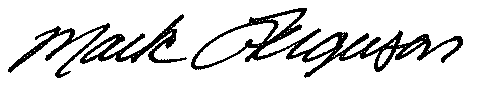 Mark Ferguson